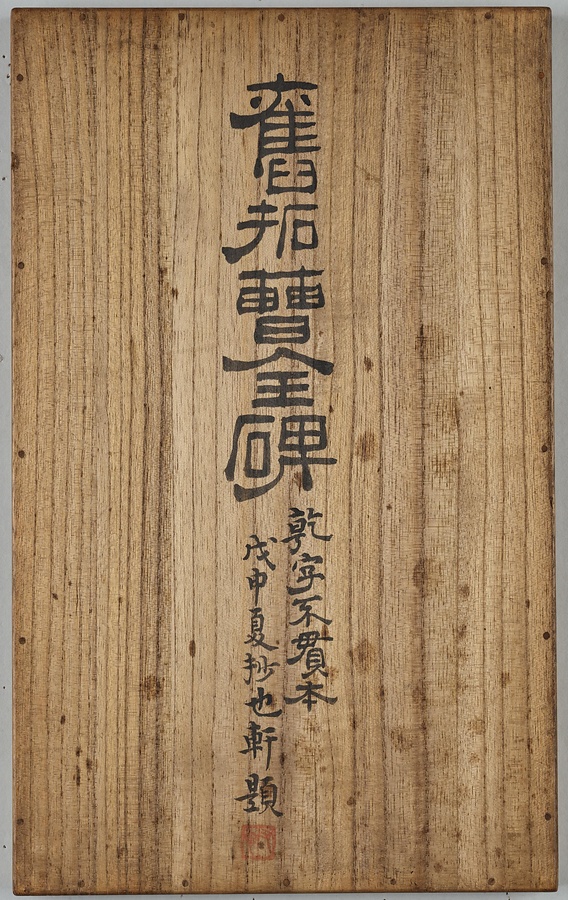 舊拓曹全碑
乾字不貫本
戊申夏抄也軒題